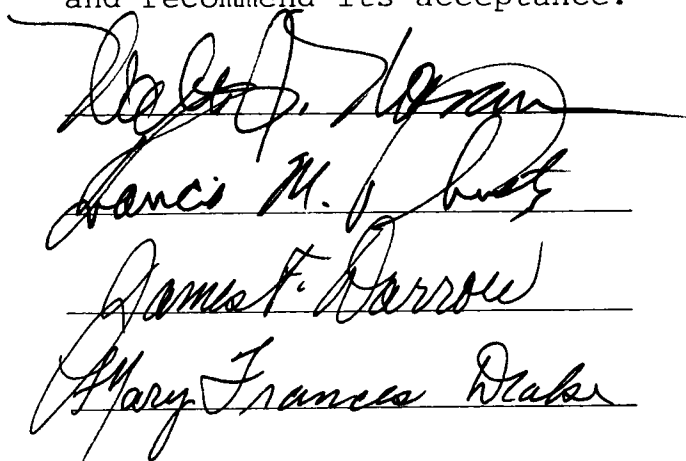 and recommend its acceptance.
J.
Francis M.
James F. Darrow
Mary Frances Drake